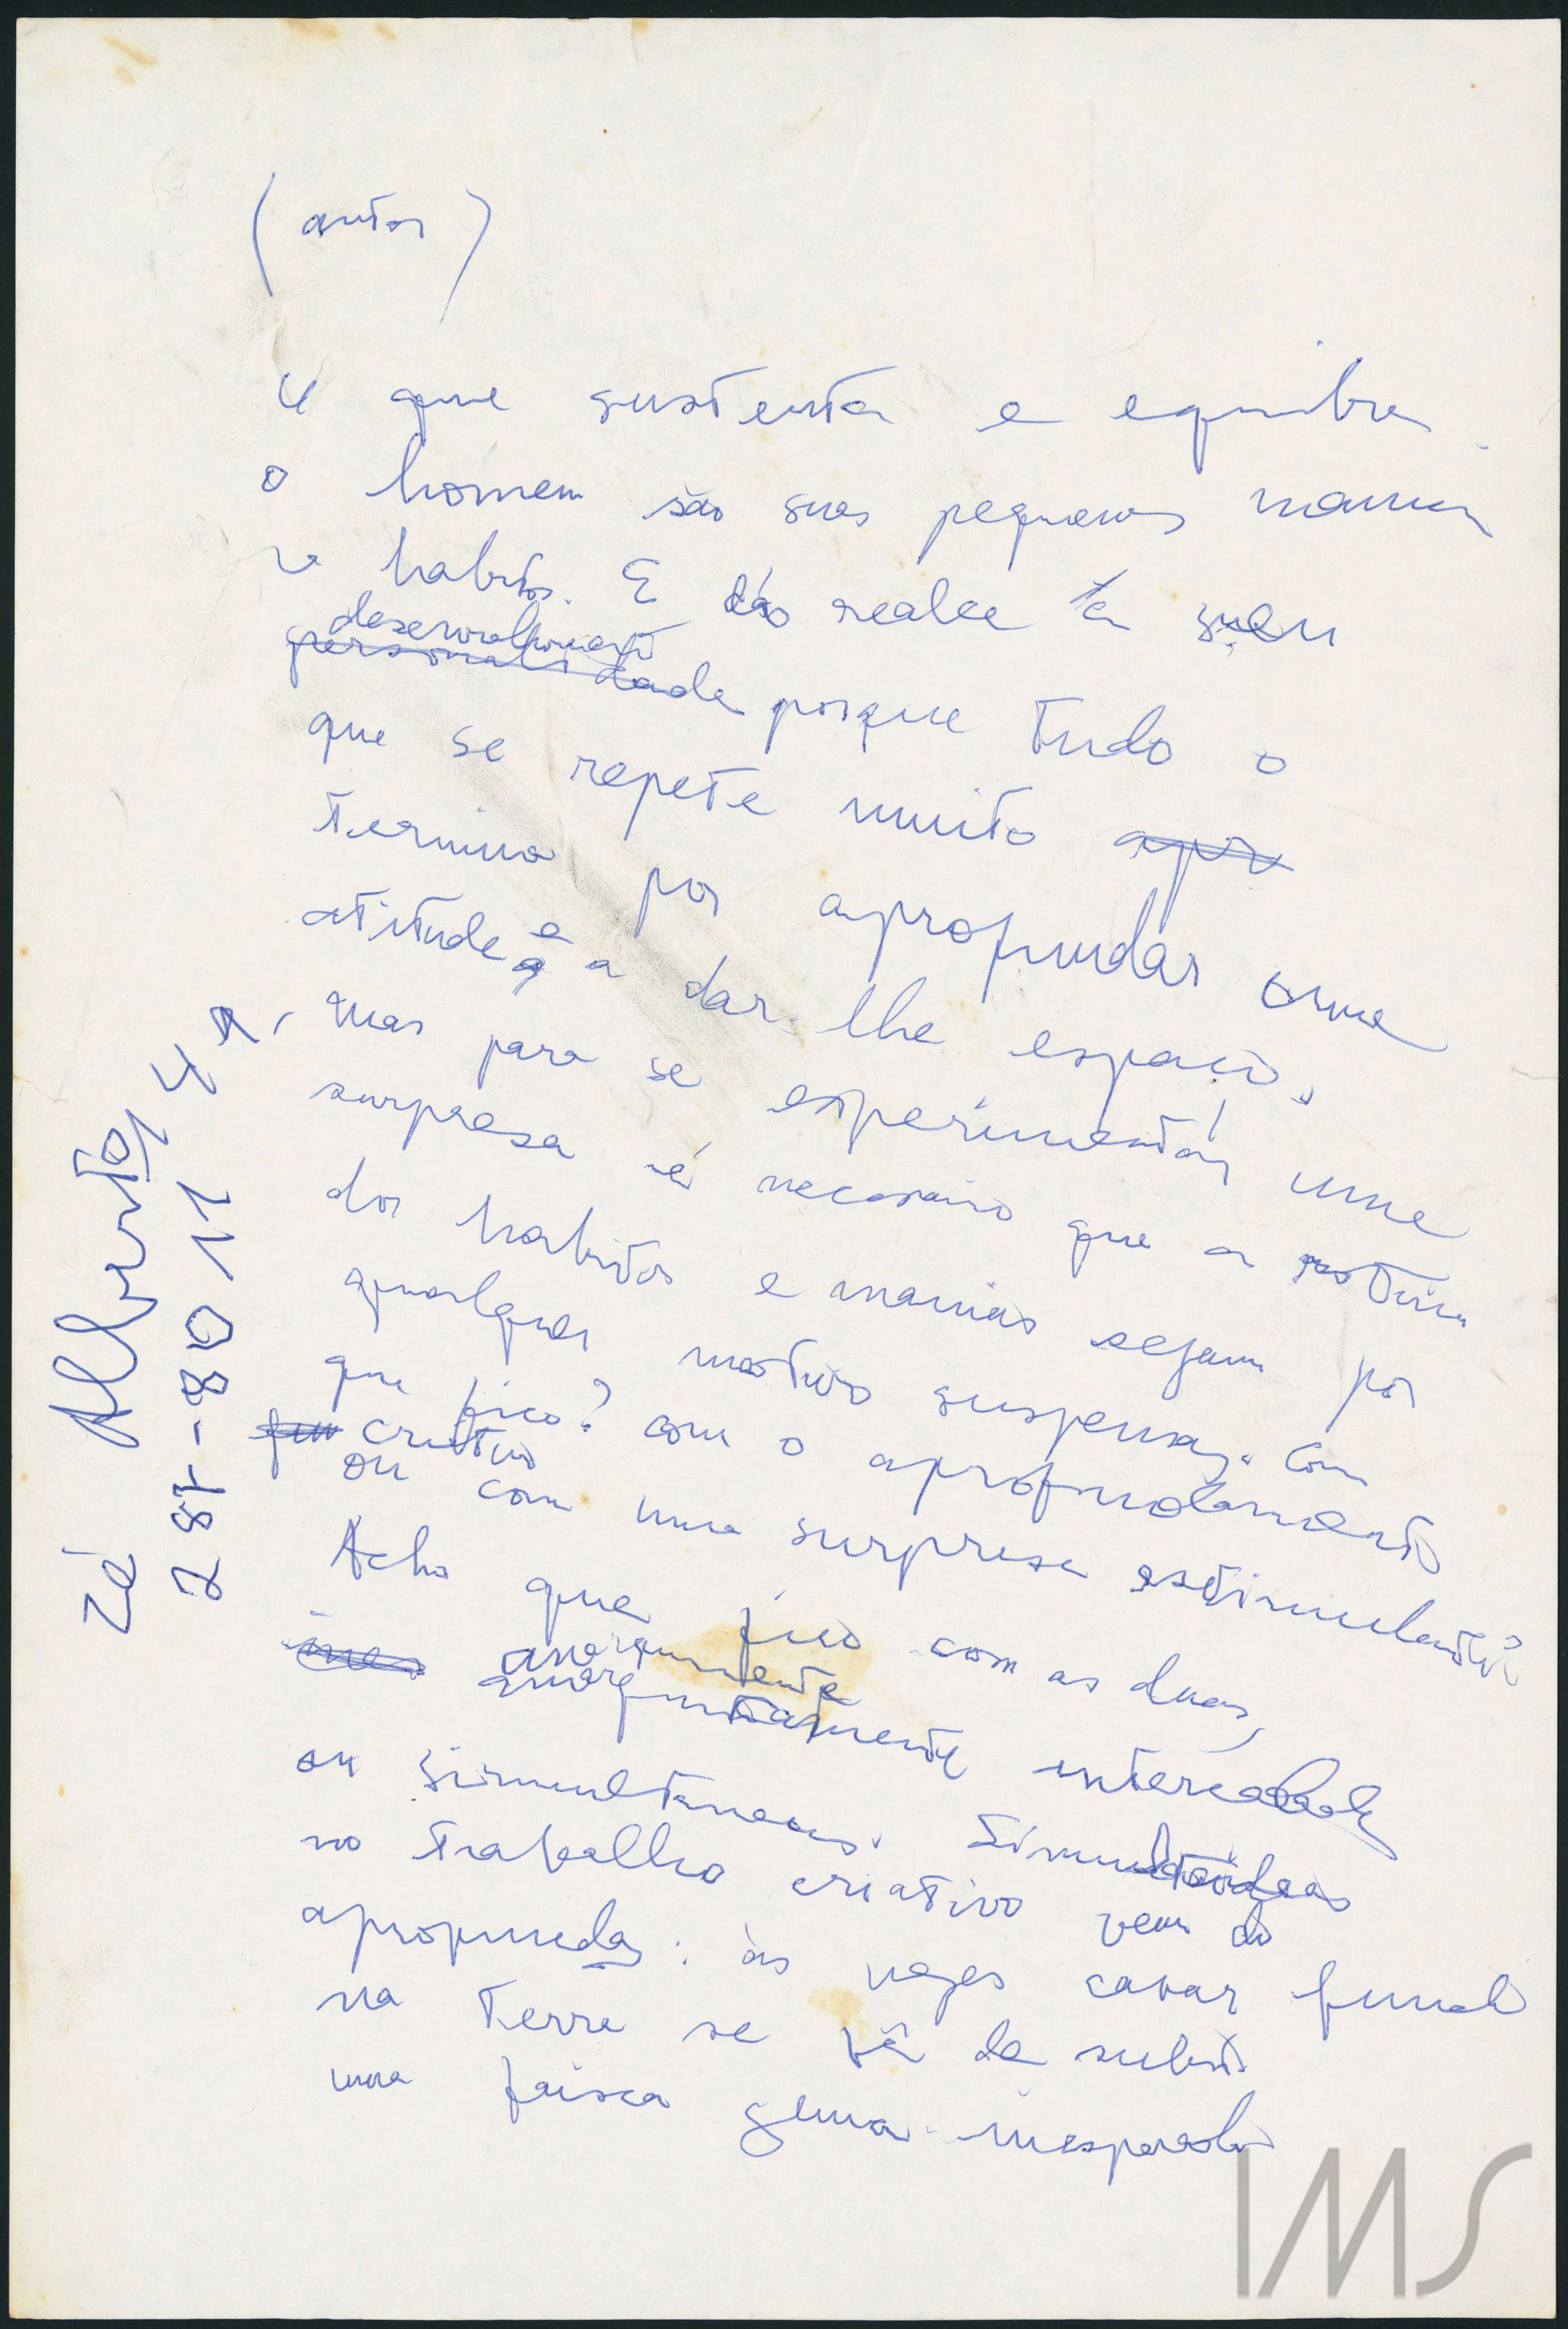 (autor)
O que sustenta e equilibra
o homem são suas pequenas manias
e habitos. E dão realce a seu
desenvolvimento
personalidade porque tudo o
que se repete muito apr
termina por aprofundar uma
atitude e a dar-lhe espaço.
Mas para se experimentar uma
surpresa é necessario que a rotina
dos habitos e manias sejam por
qualquer motivo suspensas. Com
que fico? com o aprofundamento
criativo
ou com uma surpresa estimulante?
Acho que fico com as duas,
anarquicamente
intercaladas
ou simultaneas. Simultaneas
no trabalho criativo vem do
aprofundar: às vezes cavar fundo
na terra se vê de subito
uma faisca gema inesperada
Zé Alberto, 4ª,
287-8011
IMS